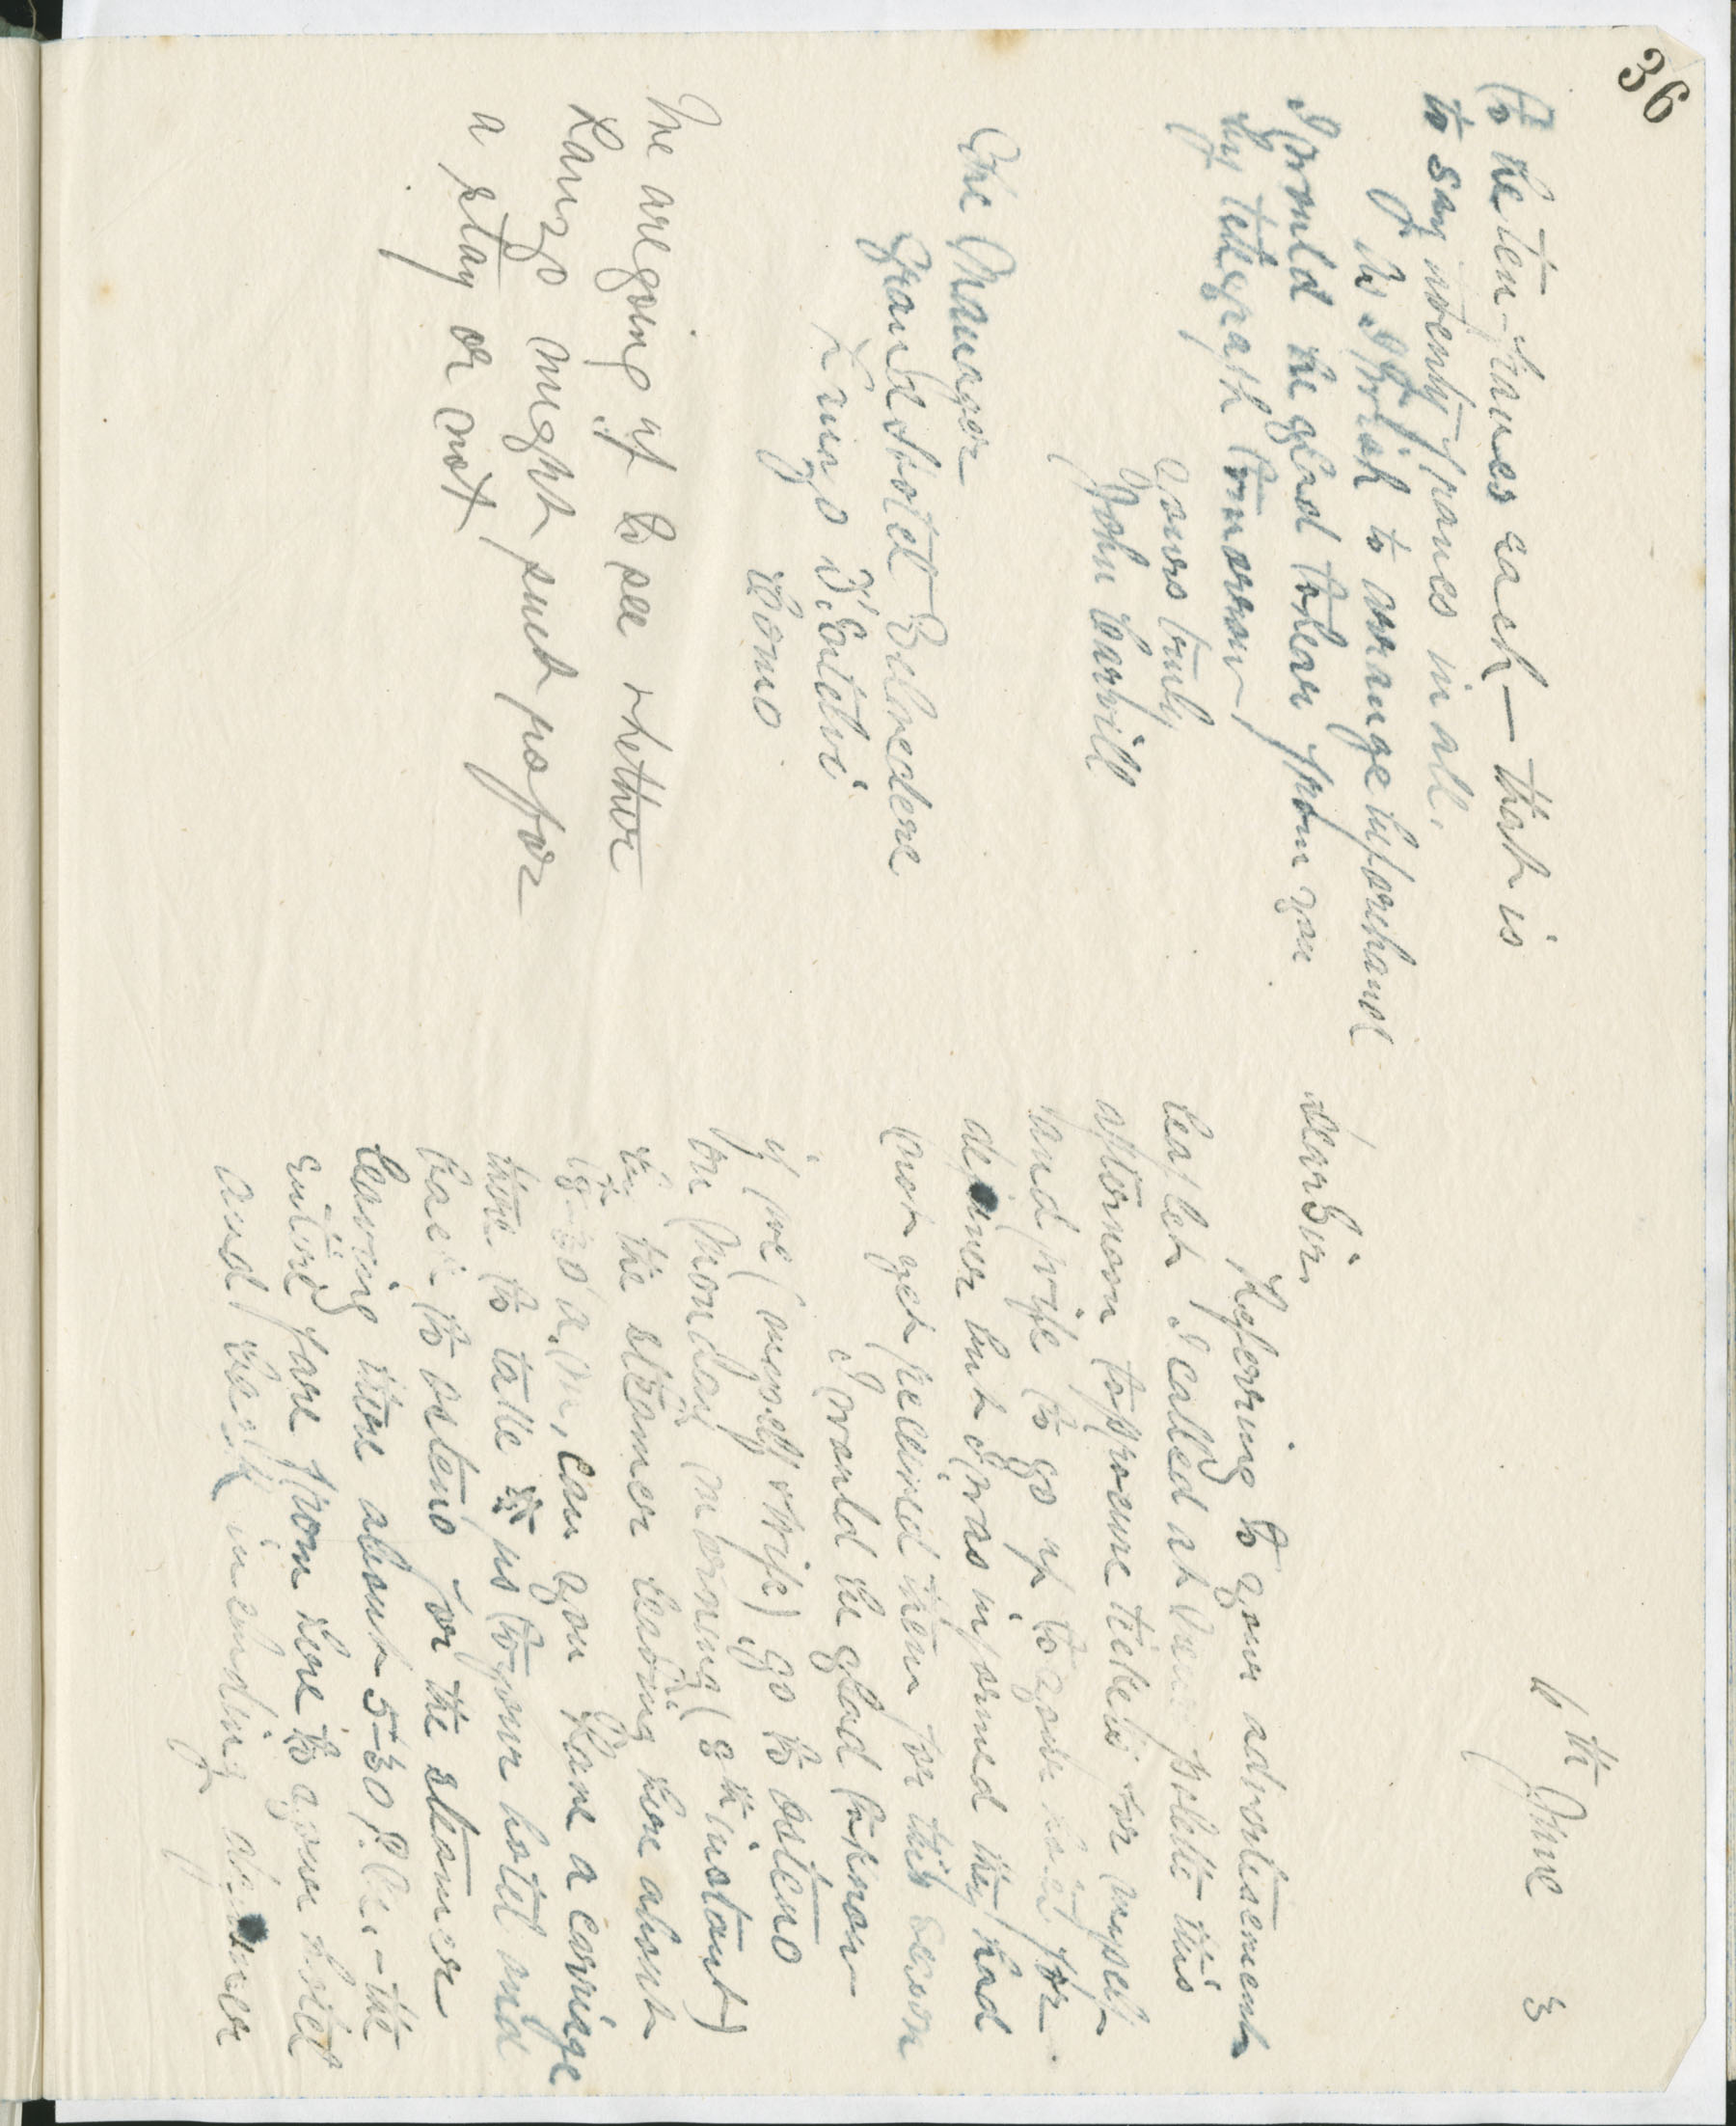 36
6th June 3
dear Sir,
Referring to your advertisement
leaflet I called at polette this
afternoon to procure tickets for myself
and wife to go up to your hotel for
dejeuner but I was informed they had
not yet received them for this season
I would be glad to know
if we (myself & wife) go to osteno
on Monday morning (8th instant)
by the steamer leaving here about
8-30 a.m. can you have a carriage
there to take us to your hotel and
back to osteno for the steamer
leaving there about 5-30 P.M. - the
entire fare from here to your hotel
and back including dejeuner
to be ten francs each — that is
to say twenty francs in all.
As I wish to arrange beforehand
I would be glad to hear from you
by telegraph tomorrow
Yours truly
John Carvill
The Manager
Grand Hotel Belvedere
Lanzo D'Intelvi
Como
We are going up to see whether
Lanzo might suit us for
a stay or not